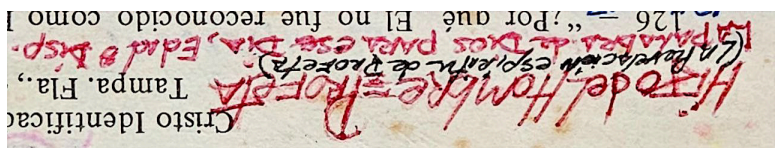 Cristo Identificac
HIJO del Hombre = PROFETA Tampa. Fla.,
(La Revelación espiritu de PROFETA)
La PALABRA de DIOS PARA ese DIA, EDAD o DISP.
126 — “¿Por qué El no fue reconocido como